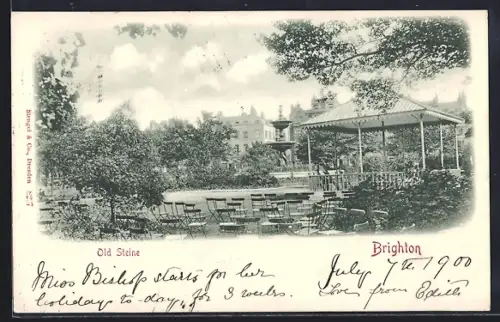 Brighton
Stengel & Co., Dresden 827
Old Steine
Brighton
Miss Bishop starts for her
holiday to-day, for 3 weeks.
July 7th, 1900
Love from Edith